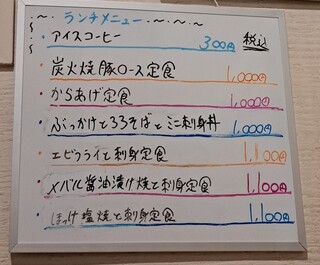 ランチメニュー
アイスコーヒー 300円 税込
・炭火焼豚ロース定食 1,000円
・からあげ定食 1,000円
・ぶっかけとろろそばとミニ刺身丼 1,000円
・エビフライと刺身定食 1,100円
・メバル醤油漬け焼と刺身定食 1,100円
・ほっけ塩焼と刺身定食 1,100円